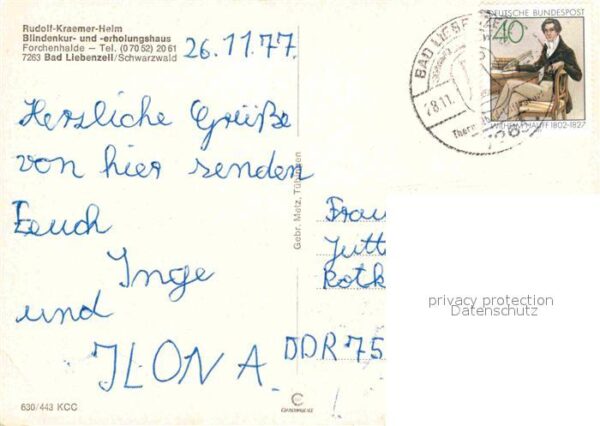 Rudolf-Kraemer-Heim
Blindenkur- und -erholungshaus
Forchenhalde — Tel. (07052) 2061
7263 Bad Liebenzell/Schwarzwald
26.11.77.
Herzliche Grüße
von hier senden
Euch
Inge
und
ILONA
630/443 KCC
Gebr. Metz, Tübingen
DEUTSCHE BUNDESPOST
40
WILHELM HAUFF 1802-1827
BAD LIEBENZE
28.11.
Frau
Jutt
Rotk
DDR 75
privacy protection
Datenschutz